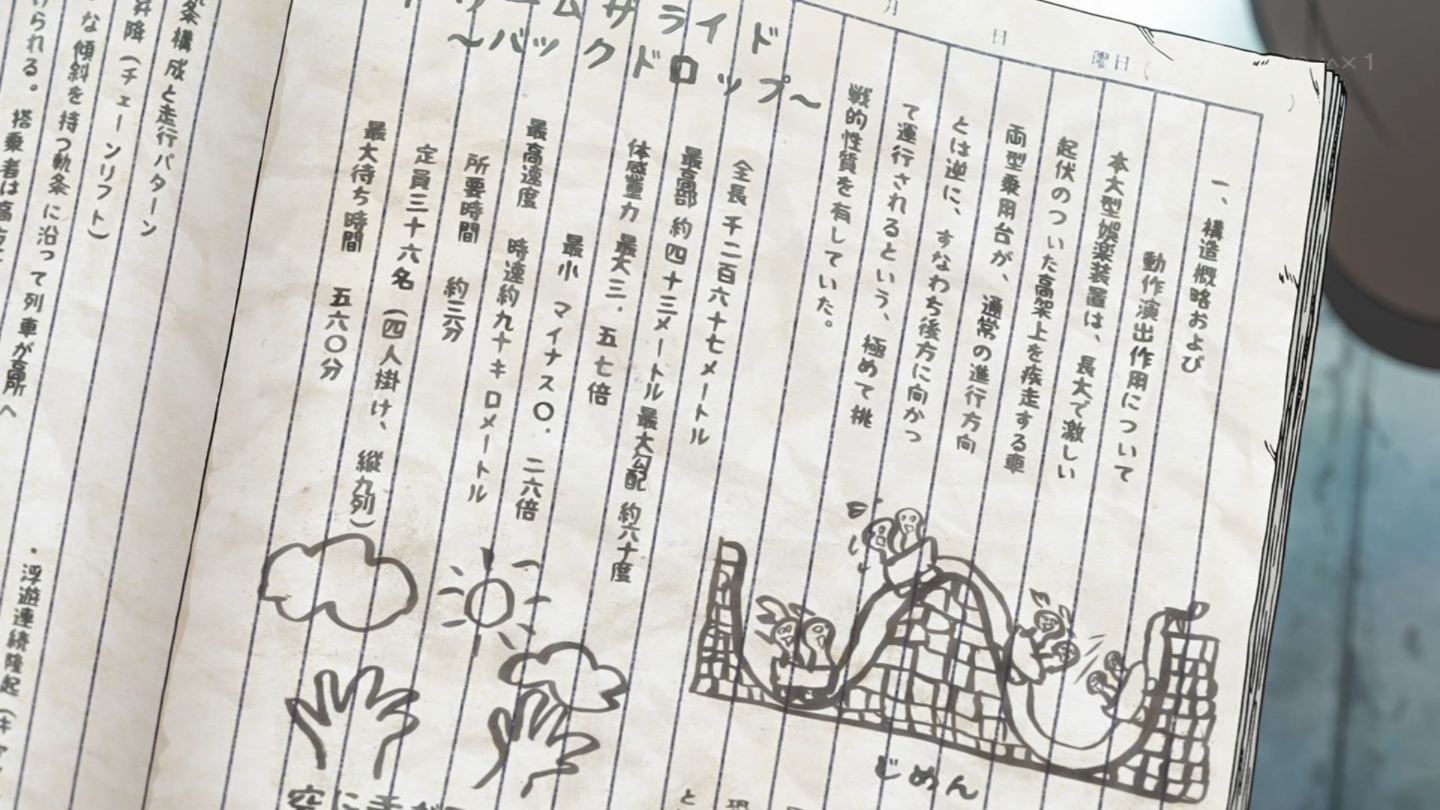 月　日　曜日
ライド
～バックドロップ～
一、構造概略および
動作演出作用について
本大型娯楽装置は、長大で激しい
起伏のついた高架上を疾走する車
両型乗用台が、通常の進行方向
とは逆に、すなわち後方に向かっ
て運行されるという、極めて挑
戦的性質を有していた。
全長 千二百六十七メートル
最高部 約四十三メートル 最大勾配 約六十度
体感重力 最大三．五七倍
最小 マイナス〇．二六倍
最高速度 時速約九十キロメートル
所要時間 約三分
定員三十六名（四人掛け、縦九列）
最大待ち時間 五六〇分
じめん
空に手が
条構成と走行パターン
昇降（チェーンリフト）
な傾斜を持つ軌条に沿って列車が高所へ
られる。搭乗者は高
・浮遊連続隆起（キャ
×1